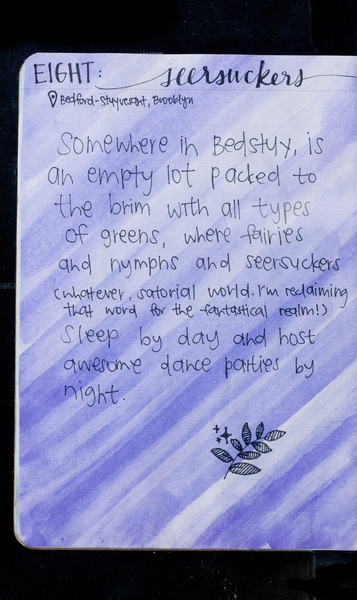 EIGHT: seersuckers
Bedford-Stuyvesant, Brooklyn
Somewhere in Bedstuy, is
an empty lot packed to
the brim with all types
of greens, where fairies
and nymphs and seersuckers
(whatever, satorial world. I'm reclaiming
that word for the fantastical realm!)
Sleep by day and host
awesome dance parties by
night.